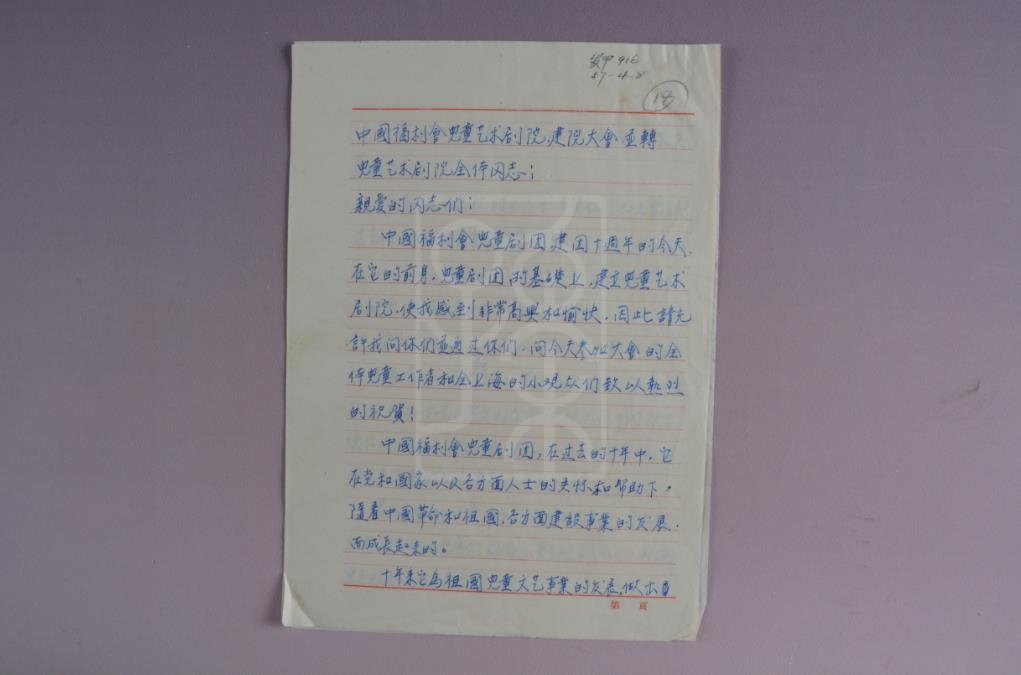 发甲 916
57-4-8
18
中國福利會兒童艺术剧院.建院大會.並轉
兒童艺术剧院全体同志；
親爱的同志们；
中國福利會.兒童剧团.建团十週年的今天.
在它的前身.兒童剧团的基礎上.建立兒童艺术
剧院.使我感到非常高興和愉快.因此請允
許我向你们並通过你们.向今天参加大會的全
体兒童工作者和全上海的小观众们致以熱烈
的祝賀！
中國福利會兒童剧团，在过去的十年中，它
在党和國家以及各方面人士的关怀和帮助下，
隨着中國革命和祖國.各方面建設事業的发展.
而成長起来的。
十年来它為祖國兒童文艺事業的发展，做出
第 頁